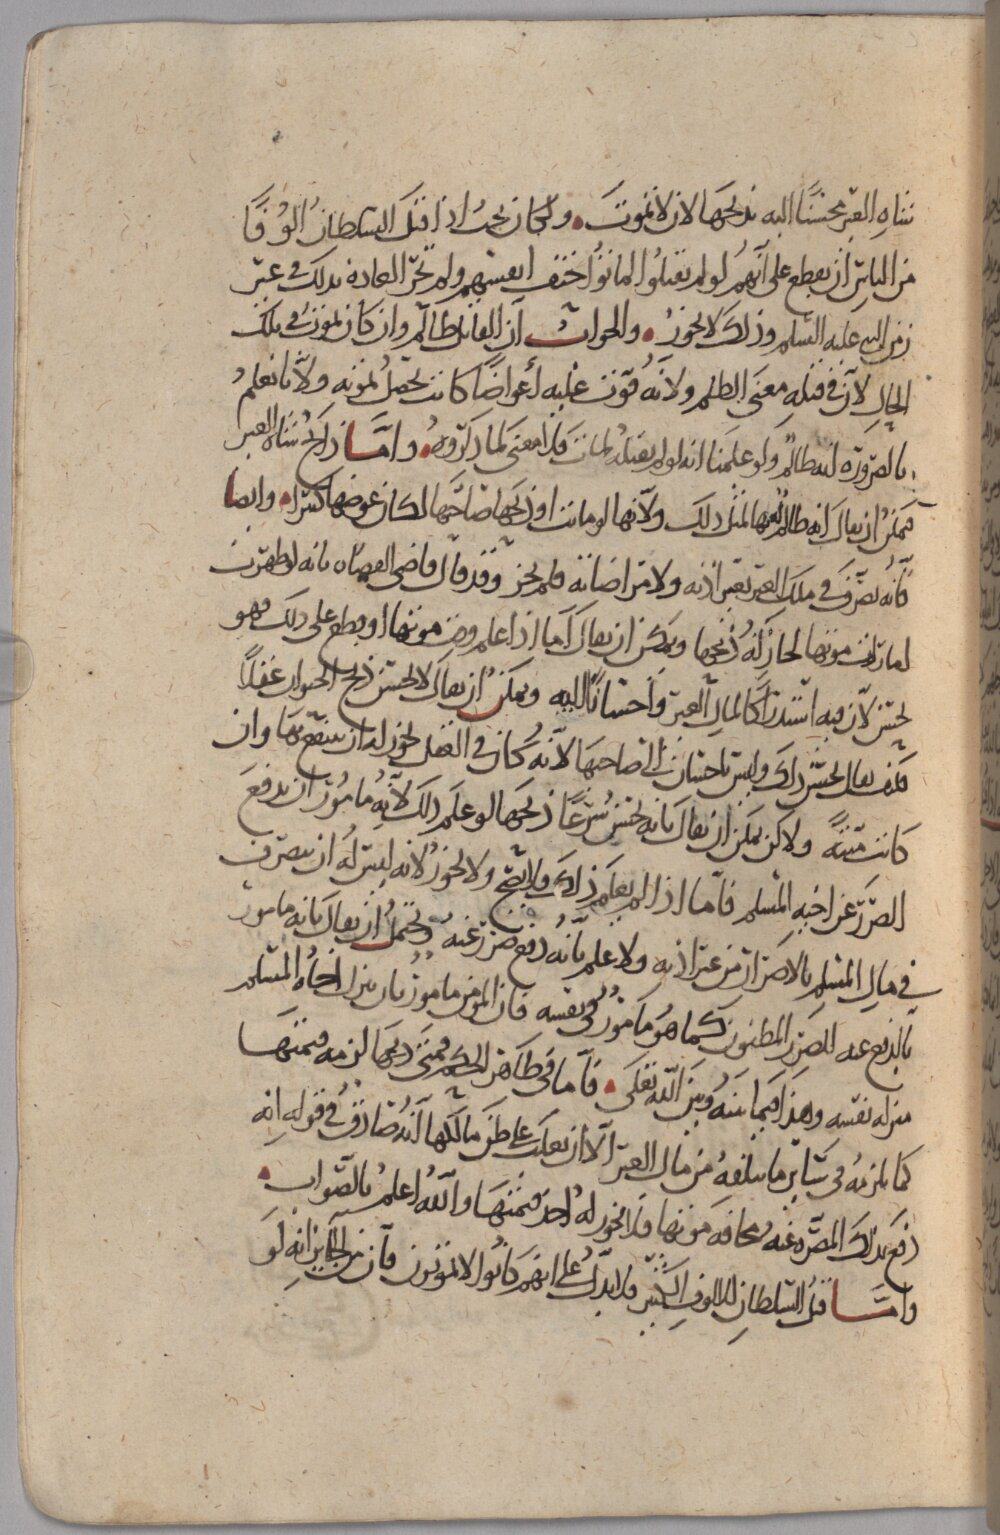 شاه الغير محسنًا اليه بذبحها لان لا تموت ۝ ولكان يجب اذا قتل السلطان الوفًا
من الناس ان يقطع على انهم لو لم يقتلوا لماتوا حتف انفسهم ولم تجر العادة بذلك في غير
زمن النبي عليه السلم وذلك لا يجوز ۝ والجواب ان القاتل ظالم وان كان يموت في تلك
الحال لان في قتله معنى الظلم ولانه فوّت عليه أعواضًا كانت تحصل بموته ولانا نعلم
بالضرورة انه ظالم ولو علمنا انه لو لم يقتله لمات فلا معنى لما ذكروه ۝ واما ذابح شاه الغير
فيمكن ان يقال انه ظالم لها لمثل ذلك ولانها لو ماتت او ذبحها صاحبها لكان عوضها كثيرا ۝ وايضا
فانه تصرف في ملك الغير بغير اذنه ولا مراضاته فلم يجز وقد قال قاضي القضاه بانه لو ظهرت
امارات موتها لجاز له ذبحها ويمكن ان يقال اما اذا علم وقت موتها او قطع على ذلك فهو
يحسن لان فيه استدراكا لمال الغير واحسانًا اليه ويمكن ان يقال لا يحسن ذبح الحيوان عقلًا
فكيف يقال يحسن ذلك وليس باحسان الى صاحبها لانه كان في العقل يجوز له ان ينتفع بها وان
كانت ميتةً ولاكن يمكن ان يقال بانه يحسن شرعًا ذبحها لو علم ذلك لانه مامور ان يدفع
الضرر عن اخيه المسلم فاما اذا لم يعلم ذلك فلا يصح ولا يجوز لانه ليس له ان يتصرف
في مال المسلم بالاضرار من غير اذنه ولا علم بانه دفع ضرر عنه ويحتمل ان يقال بانه مامور
بالدفع عنه للضرر المظنون كما هو مامور في نفسه فان المومن مامور بان ينزل اخاه المسلم
منزله نفسه وهذا فيما بينه وبين الله تعلى ۝ فاما في ظاهر الحكم فمتى ذبحها لزمه قيمتها
كما يلزمه في ساير ما يتلفه من مال الغير الا ان يغلب على ظن مالكها انه صادق في قوله انه
دفع بذلك المضره عنه مخافه موتها فلا يجوز له اخذ قيمتها والله اعلم بالصواب ۝
واما قتل السلطان للالوف الكثير فلا يدل على انهم كانوا لا يموتون فان من الجايز انه لو